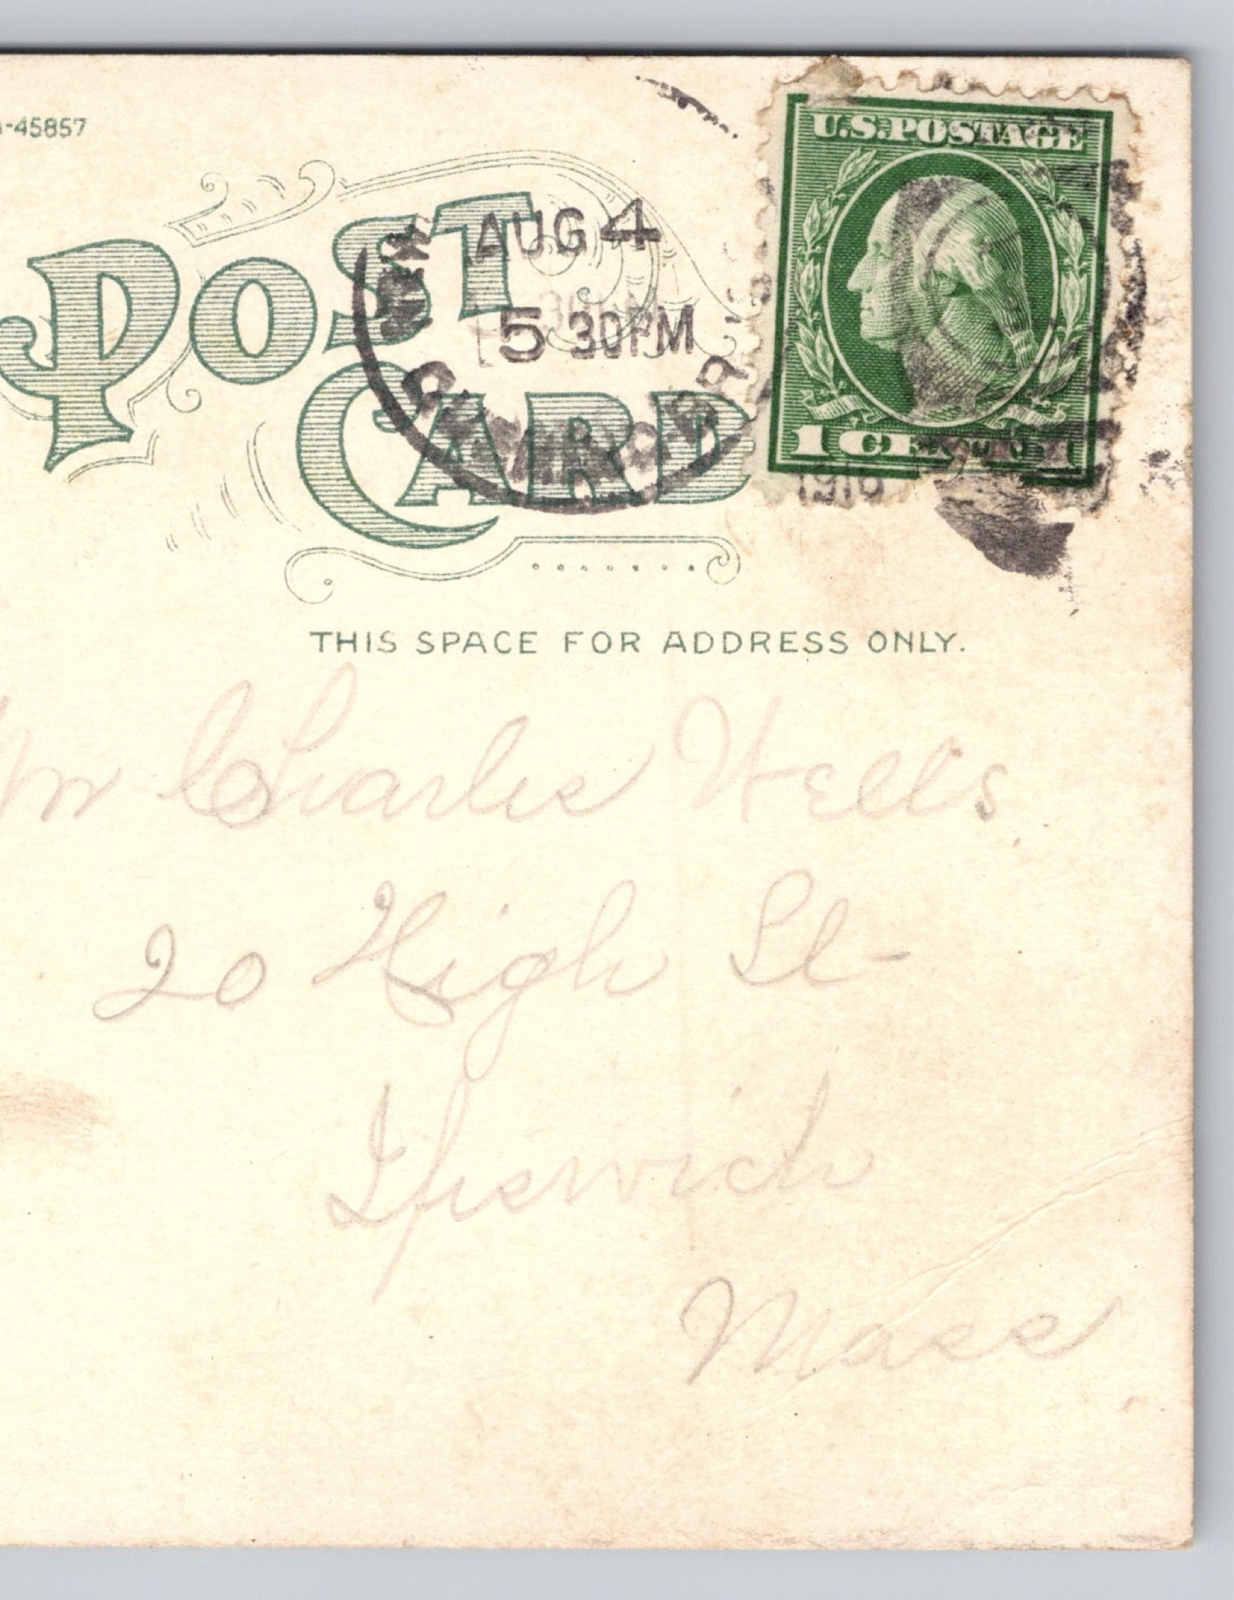 -45857
POST
CARD
AUG 4
5 30 PM
1916
U.S. POSTAGE
1 CENT 1
THIS SPACE FOR ADDRESS ONLY.
Mr Charles Wells
20 High St-
Ipswich
Mass